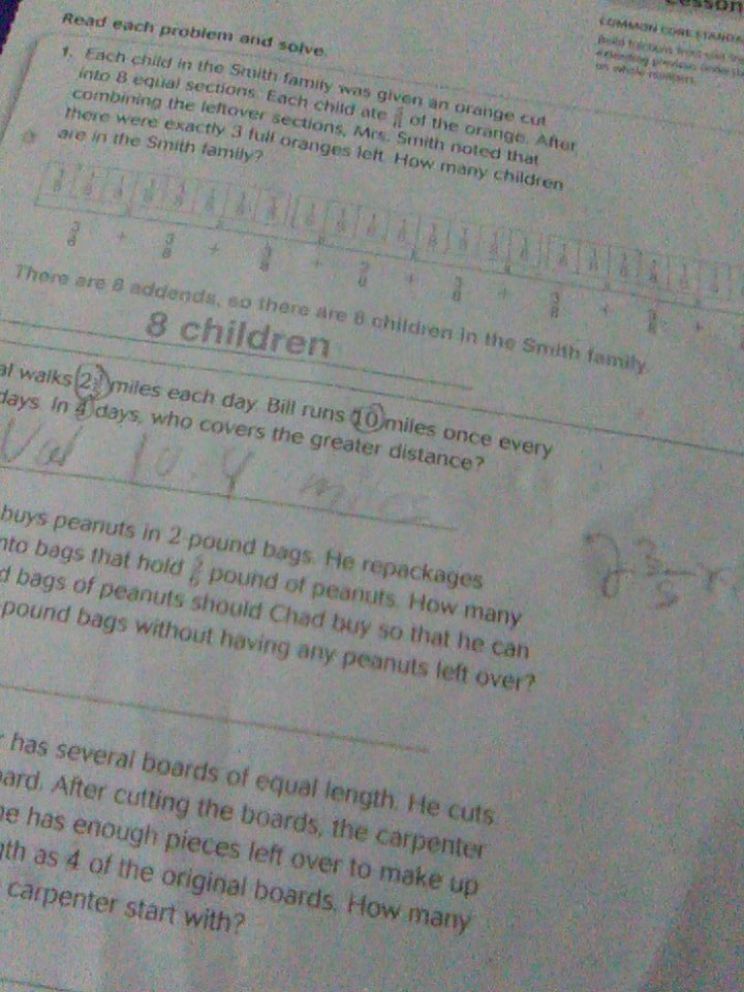 Lesson
COMMON CORE STANDA
Read each problem and solve.
1. Each child in the Smith family was given an orange cut
into 8 equal sections. Each child ate of the orange. After
combining the leftover sections, Mrs. Smith noted that
there were exactly 3 full oranges left. How many children
are in the Smith family?
3/8 + 3/8 + 3/8 + 3/8 + 3/8 + 3/8 + 3/8 +
There are 8 addends, so there are 8 children in the Smith family.
8 children
al walks 2 miles each day. Bill runs 10 miles once every
days. In 4 days, who covers the greater distance?
Val 10.4 miles
buys peanuts in 2 pound bags. He repackages
nto bags that hold pound of peanuts. How many
d bags of peanuts should Chad buy so that he can
pound bags without having any peanuts left over?
2 3/5 x
r has several boards of equal length. He cuts
oard. After cutting the boards, the carpenter
he has enough pieces left over to make up
gth as 4 of the original boards. How many
carpenter start with?